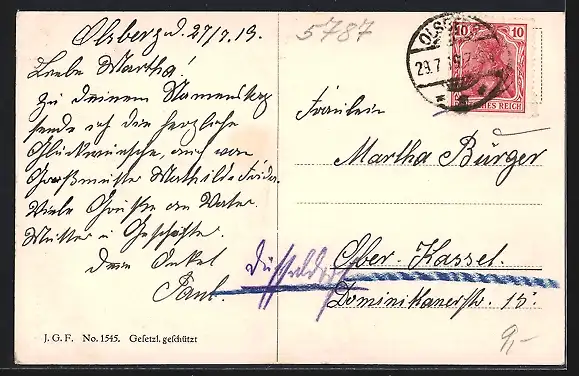 Olsberg d. 27/7.19.
Liebe Martha!
Zu Deinem Namenstag
sende ich die herzliche
Glückwünsche, auch von
Großmutter Mathilde Frieda.
Viele Grüße an Vater
Mutter u Geschister.
Dein Onkel
Paul.
J. G. F. No. 1545. Gesetzl. geschützt
5787
OLSBERG
29.7.19.7-
10 10
DEUTSCHES REICH
Fräulein
Martha Bürger
Ober-Kassel.
Düsseldorf
Dominikanerstr. 15.
9,-